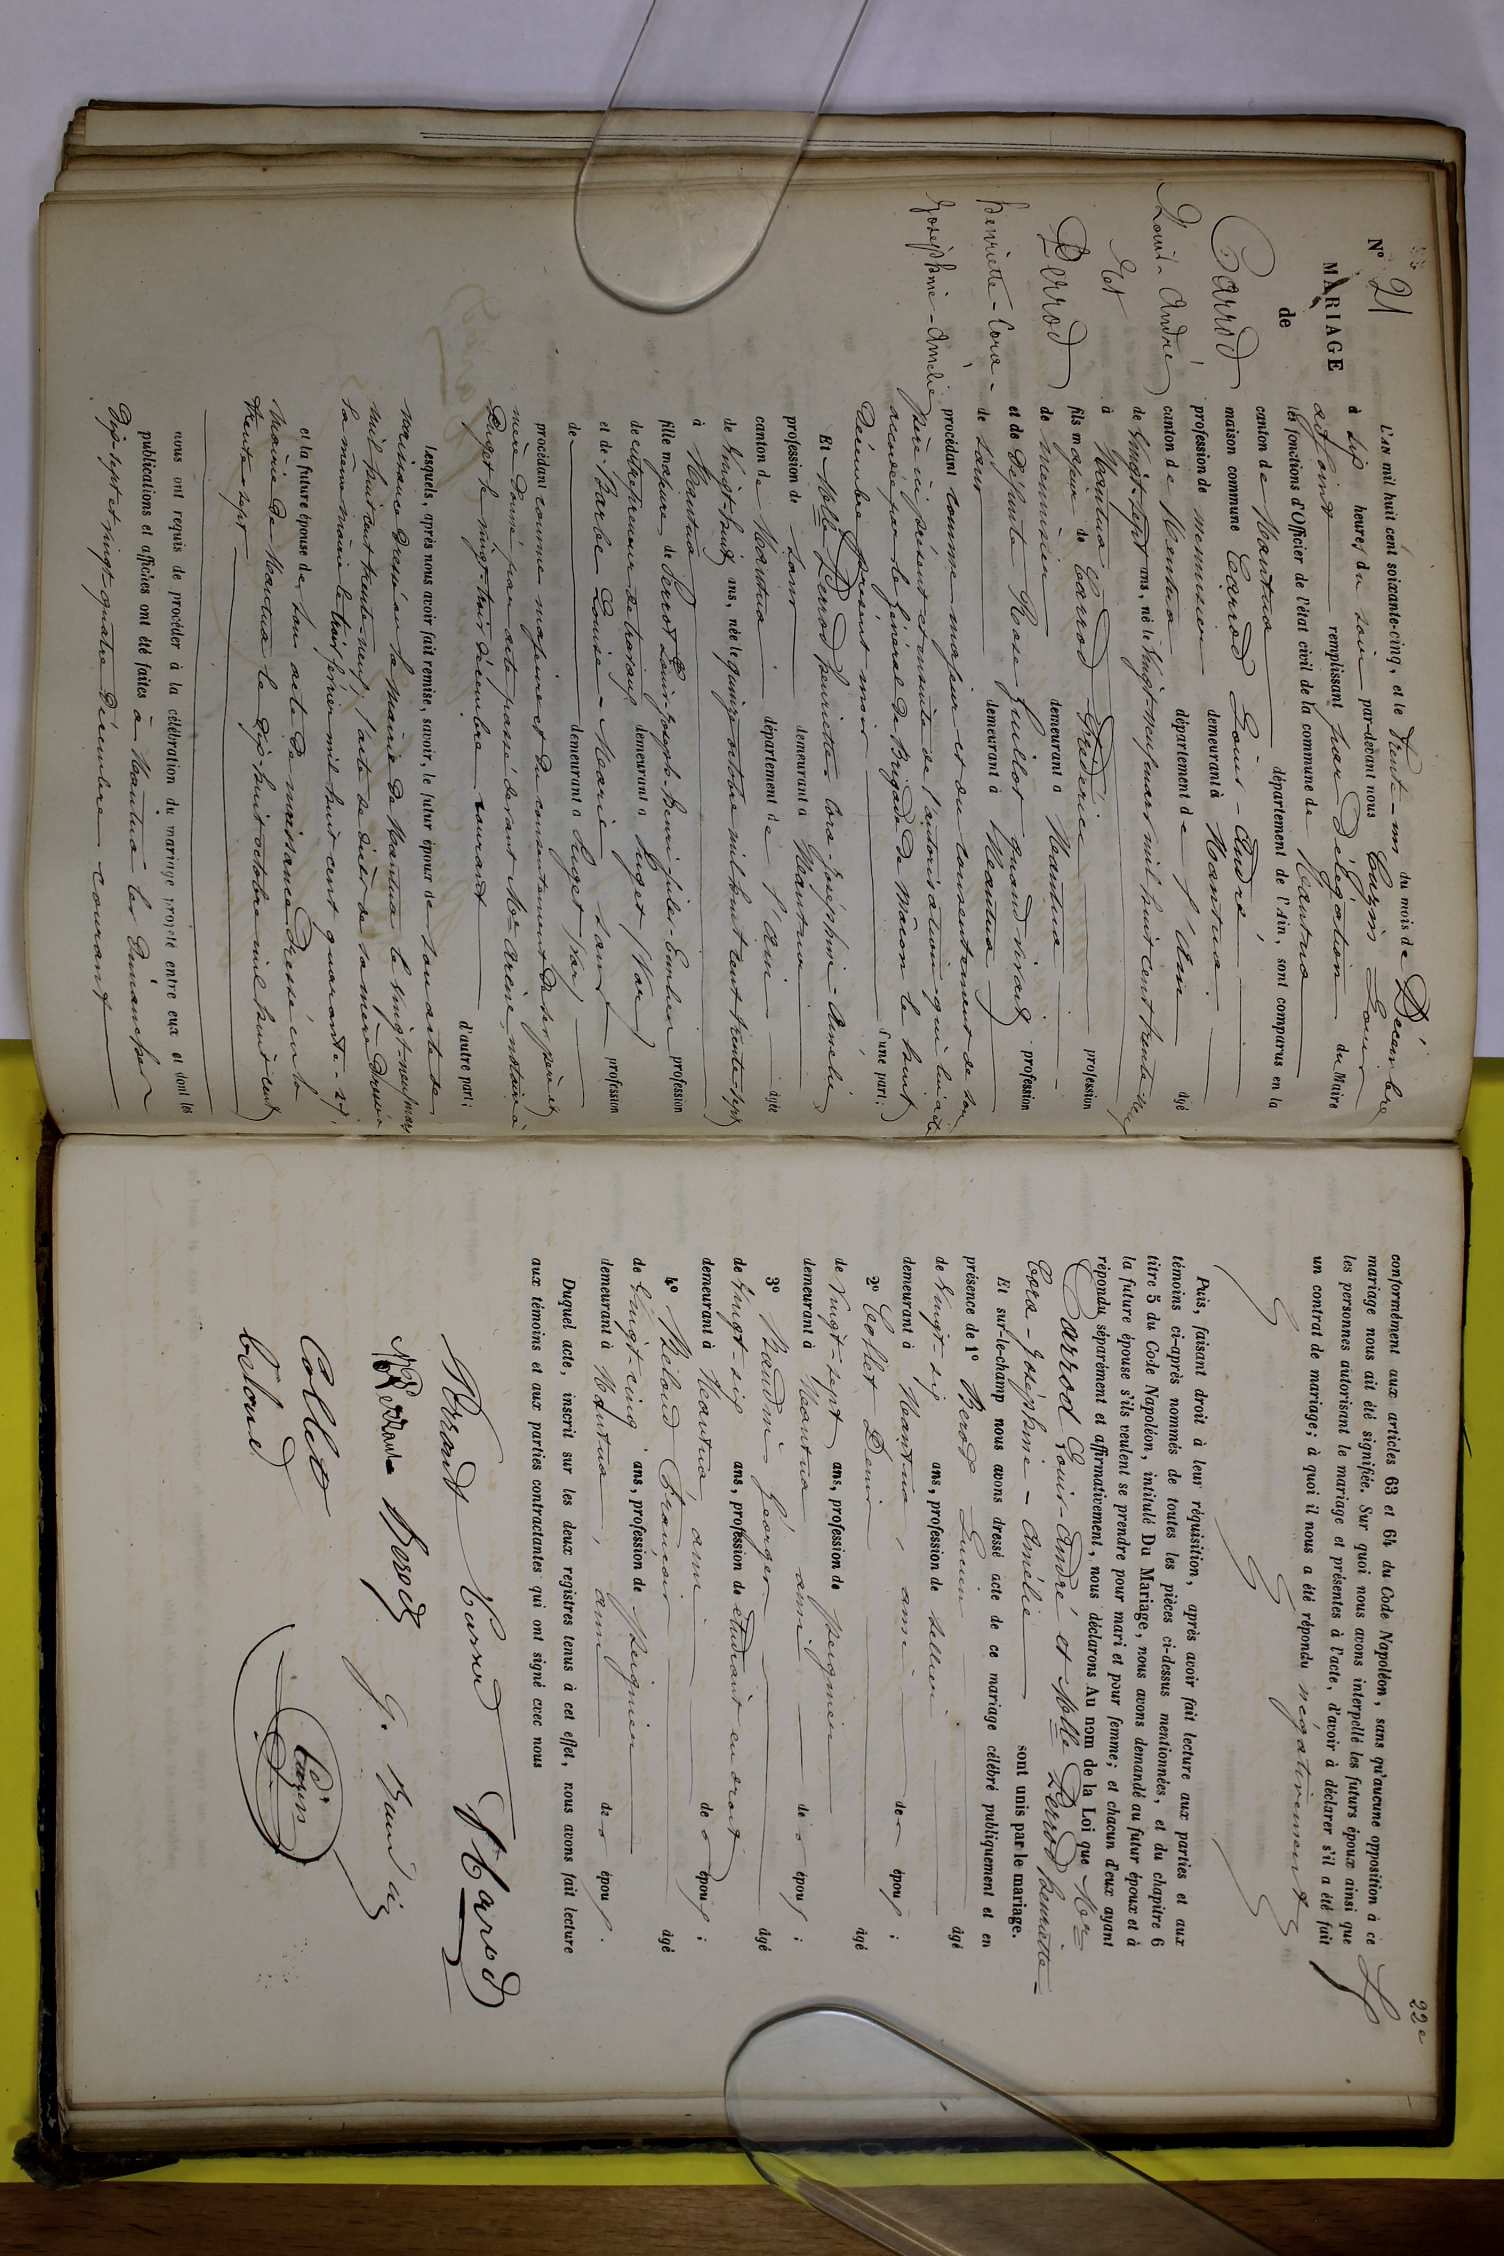 N° 21
MARIAGE
de
Carrod
Louis-André
Et
Perrod
Henriette-Cora-
Joséphine-Amélie
L'an mil huit cent soixante-cinq, et le trente-un du mois de Décembre
à six heures du soir par-devant nous Louis
adjoint remplissant par Délégation du Maire
les fonctions d'Officier de l'état civil de la commune de Nantua
canton de Nantua département de l'Ain, sont comparus en la
maison commune Carrod Louis-André
profession de menuisier demeurant à Nantua
canton de Nantua département de l'Ain âgé
de Vingt-sept ans, né le Vingt-neuf mars mil huit cent trente
à Nantua
fils majeur de Carrod Frédéric profession
de menuisier demeurant à Nantua
et de défunte Rose Guillot quand vivait profession
de sans demeurant à Nantua
procédant comme majeur et du consentement de son
père ici présent et ensuite de l'autorisation qui lui a été
accordée par le Général de Brigade de Mâcon le huit
Décembre présent mois d'une part;
Et Melle Perrod Henriette-Cora-Joséphine-Amélie
profession de sans demeurant à Nantua
canton de Nantua département de l'Ain âgée
de Vingt-huit ans, née le quinze octobre mil huit cent trente-sept
à Nantua
fille majeure de Perrod Louis-Joseph-Henri-Jules-Emilien profession
de entrepreneur de travaux demeurant à Puget (Var)
et de Barbe Louise-Marie sans profession
de demeurant à Puget (Var)
procédant comme majeure et du consentement de ses père et
mère donné par acte passé devant Me Arène, notaire à
Puget le vingt-trois décembre courant d'autre part;
Lesquels, après nous avoir fait remise, savoir, le futur époux de son acte de
naissance dressé en la Mairie de Nantua le vingt-neuf mars
mil huit cent trente-neuf, l'acte de décès de sa mère dressé
la même mairie le trois février mil huit cent quarante-
et la future épouse de son acte de naissance dressé en la
Mairie de Nantua le dix-huit octobre mil huit cent
trente-sept
nous ont requis de procéder à la célébration du mariage projeté entre eux et dont les
publications et affiches ont été faites à Nantua les Dimanches
dix-sept et vingt-quatre Décembre courant
22e
conformément aux articles 63 et 64 du Code Napoléon, sans qu'aucune opposition à ce
mariage nous ait été signifiée. Sur quoi nous avons interpellé les futurs époux ainsi que
les personnes autorisant le mariage et présentes à l'acte, d'avoir à déclarer s'il a été fait
un contrat de mariage; à quoi il nous a été répondu négativement
Puis, faisant droit à leur réquisition, après avoir fait lecture aux parties et aux
témoins ci-après nommés de toutes les pièces ci-dessus mentionnées, et du chapitre 6
titre 5 du Code Napoléon, intitulé Du Mariage, nous avons demandé au futur époux et à
la future épouse s'ils veulent se prendre pour mari et pour femme; et chacun d'eux ayant
répondu séparément et affirmativement, nous déclarons Au nom de la Loi que Mr
Carrod Louis-André et Melle Perrod Henriette-
Cora-Joséphine-Amélie sont unis par le mariage.
Et sur-le-champ nous avons dressé acte de ce mariage célébré publiquement et en
présence de 1° Berod âgé
de Vingt-six ans, profession de sellier
demeurant à Nantua, ami des époux;
2° Collet Denis âgé
de Vingt-sept ans, profession de peigneur
demeurant à Nantua ami des époux;
3° Baudin Georges âgé
de Vingt-six ans, profession de étudiant en droit
demeurant à Nantua, ami des époux;
4° Béloud François âgé
de Vingt-cinq ans, profession de peigneur
demeurant à Nantua, ami des époux.
Duquel acte, inscrit sur les deux registres tenus à cet effet, nous avons fait lecture
aux témoins et aux parties contractantes qui ont signé avec nous
Carrod
Berod
G. Baudin
Collet
béloud